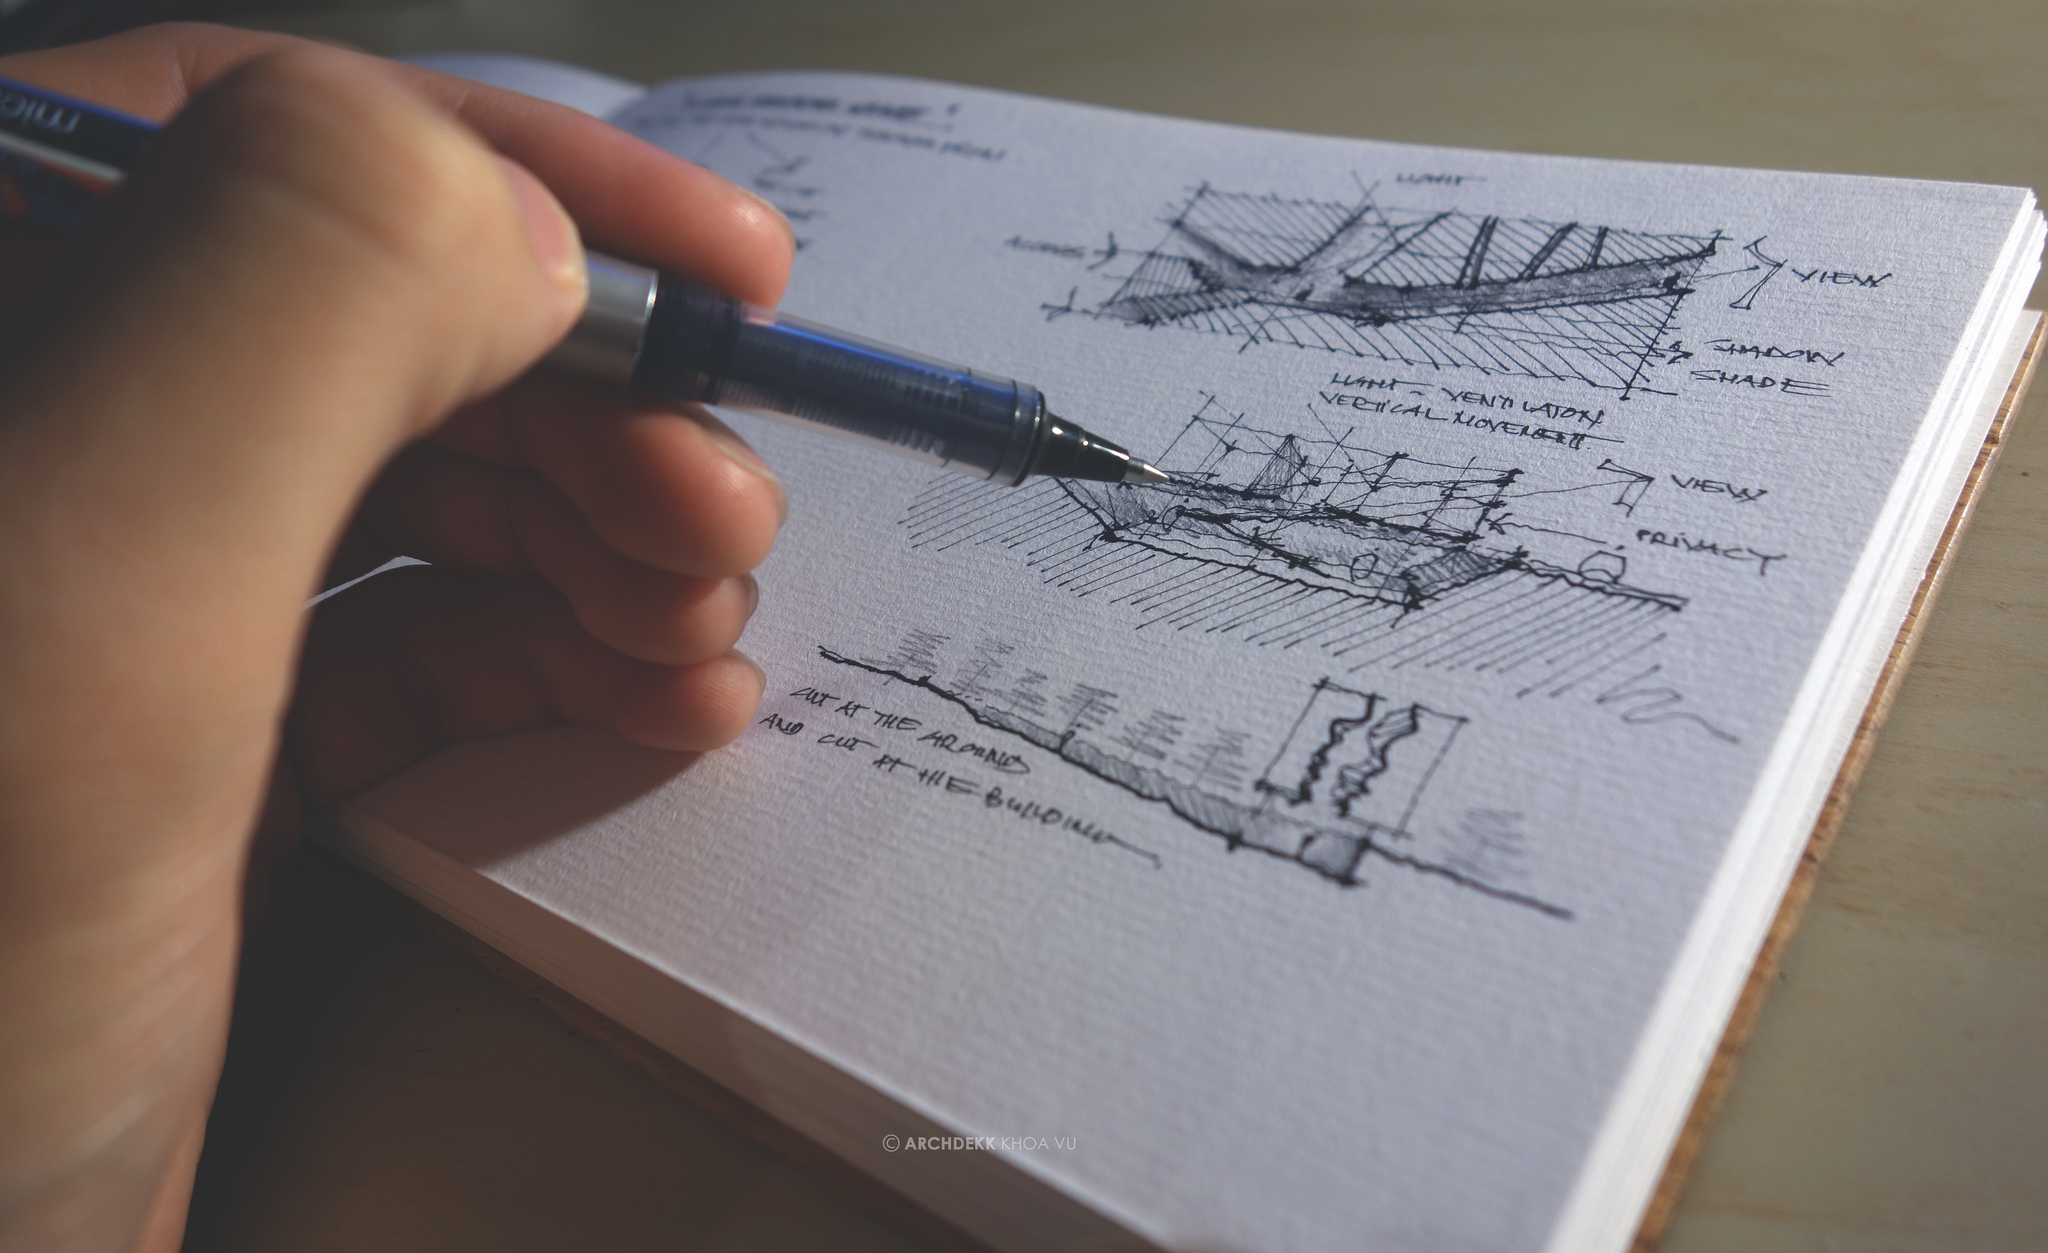 mic
LIGHT
ACCESS
VIEW
SHADOW
SHADE
LIGHT - VENTILATON
VERTICAL MOVEMENT
VIEW
PRIVACY
CUT AT THE GROUND
AND CUT AT THE BUILDING
© ARCHDEKK KHOA VU